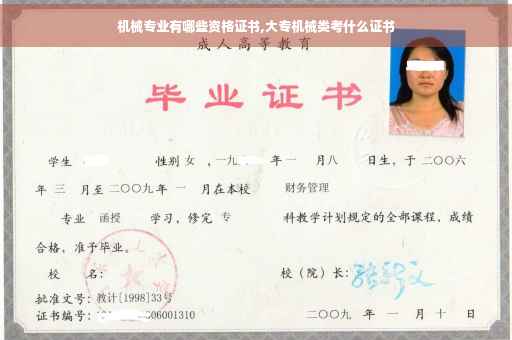 机械专业有哪些资格证书,大专机械类考什么证书
成人高等教育
毕业证书
学生 性别 女 ，一九 年 一 月八 日生，于 二〇〇六
年 三 月至 二〇〇九 年 一 月在本校 财务管理
专业 函授 学习，修完 专 科教学计划规定的全部课程，成绩
合格，准予毕业。
校 名： 校（院）长：
批准文号：教计[1998]33号
证书编号： 06001310 二〇〇九 年 一 月 十 日